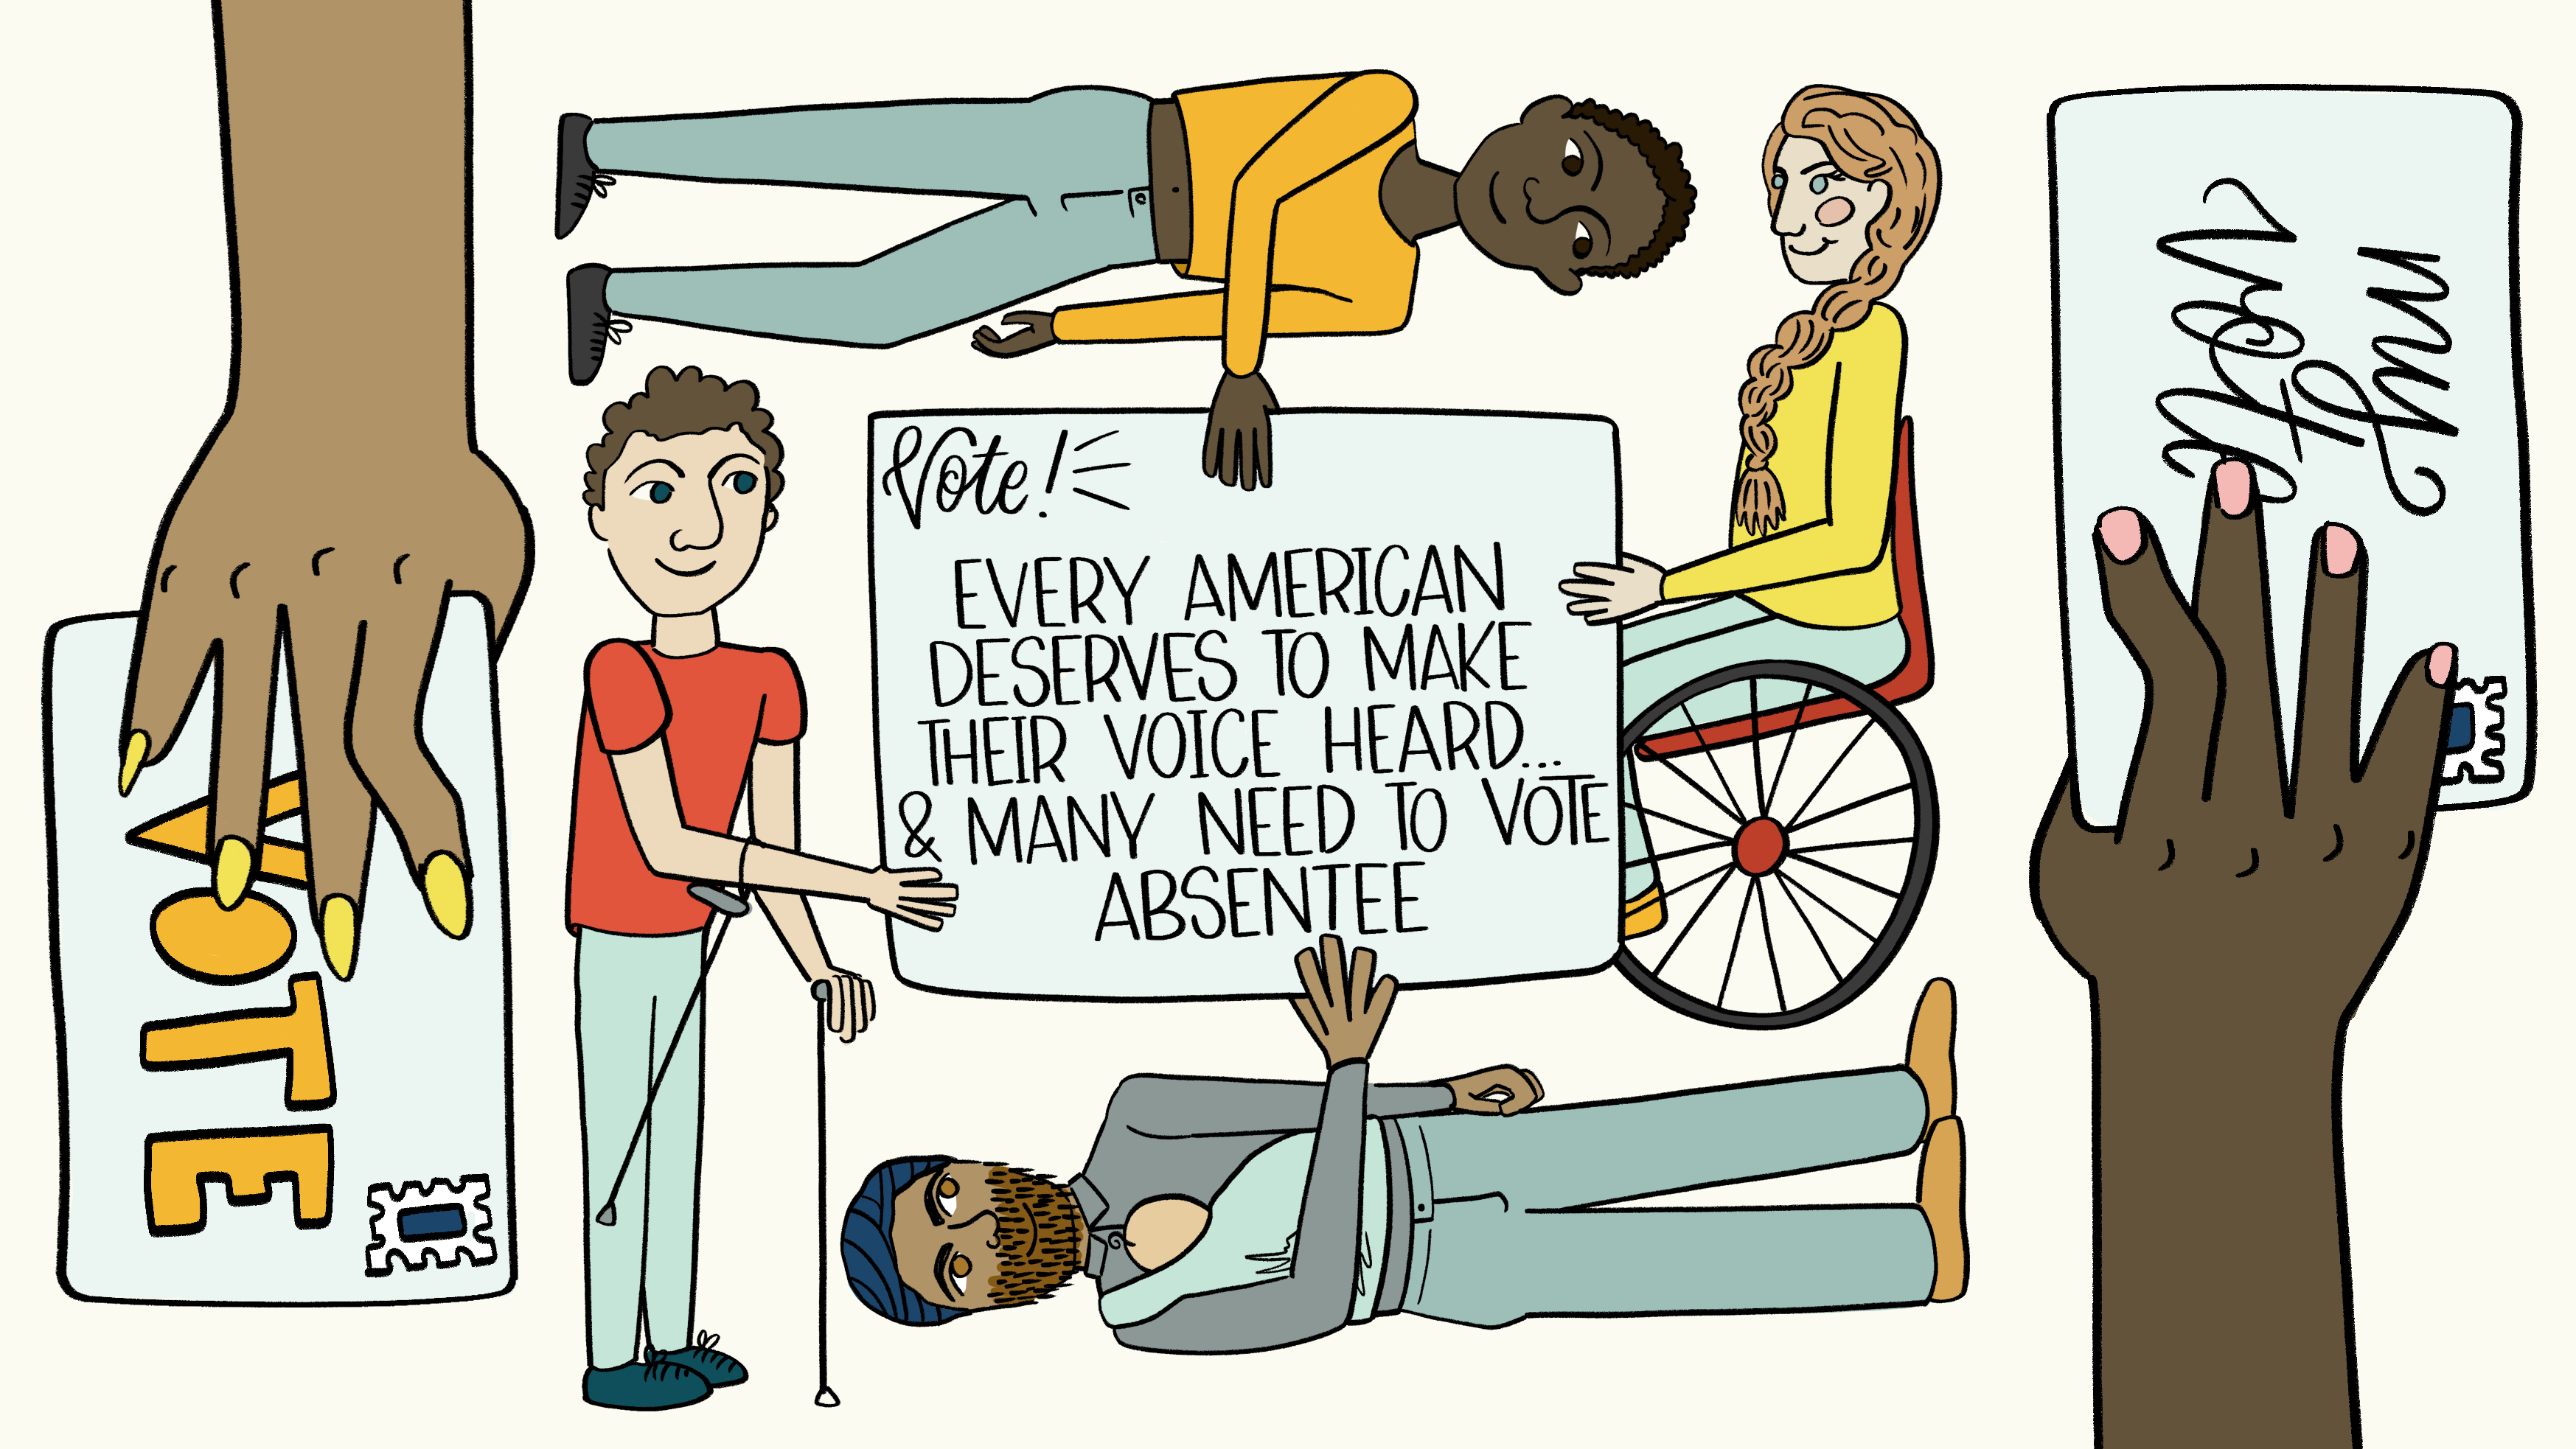 VOTE
Vote!
EVERY AMERICAN
DESERVES TO MAKE
THEIR VOICE HEARD...
& MANY NEED TO VOTE
ABSENTEE
my
vote